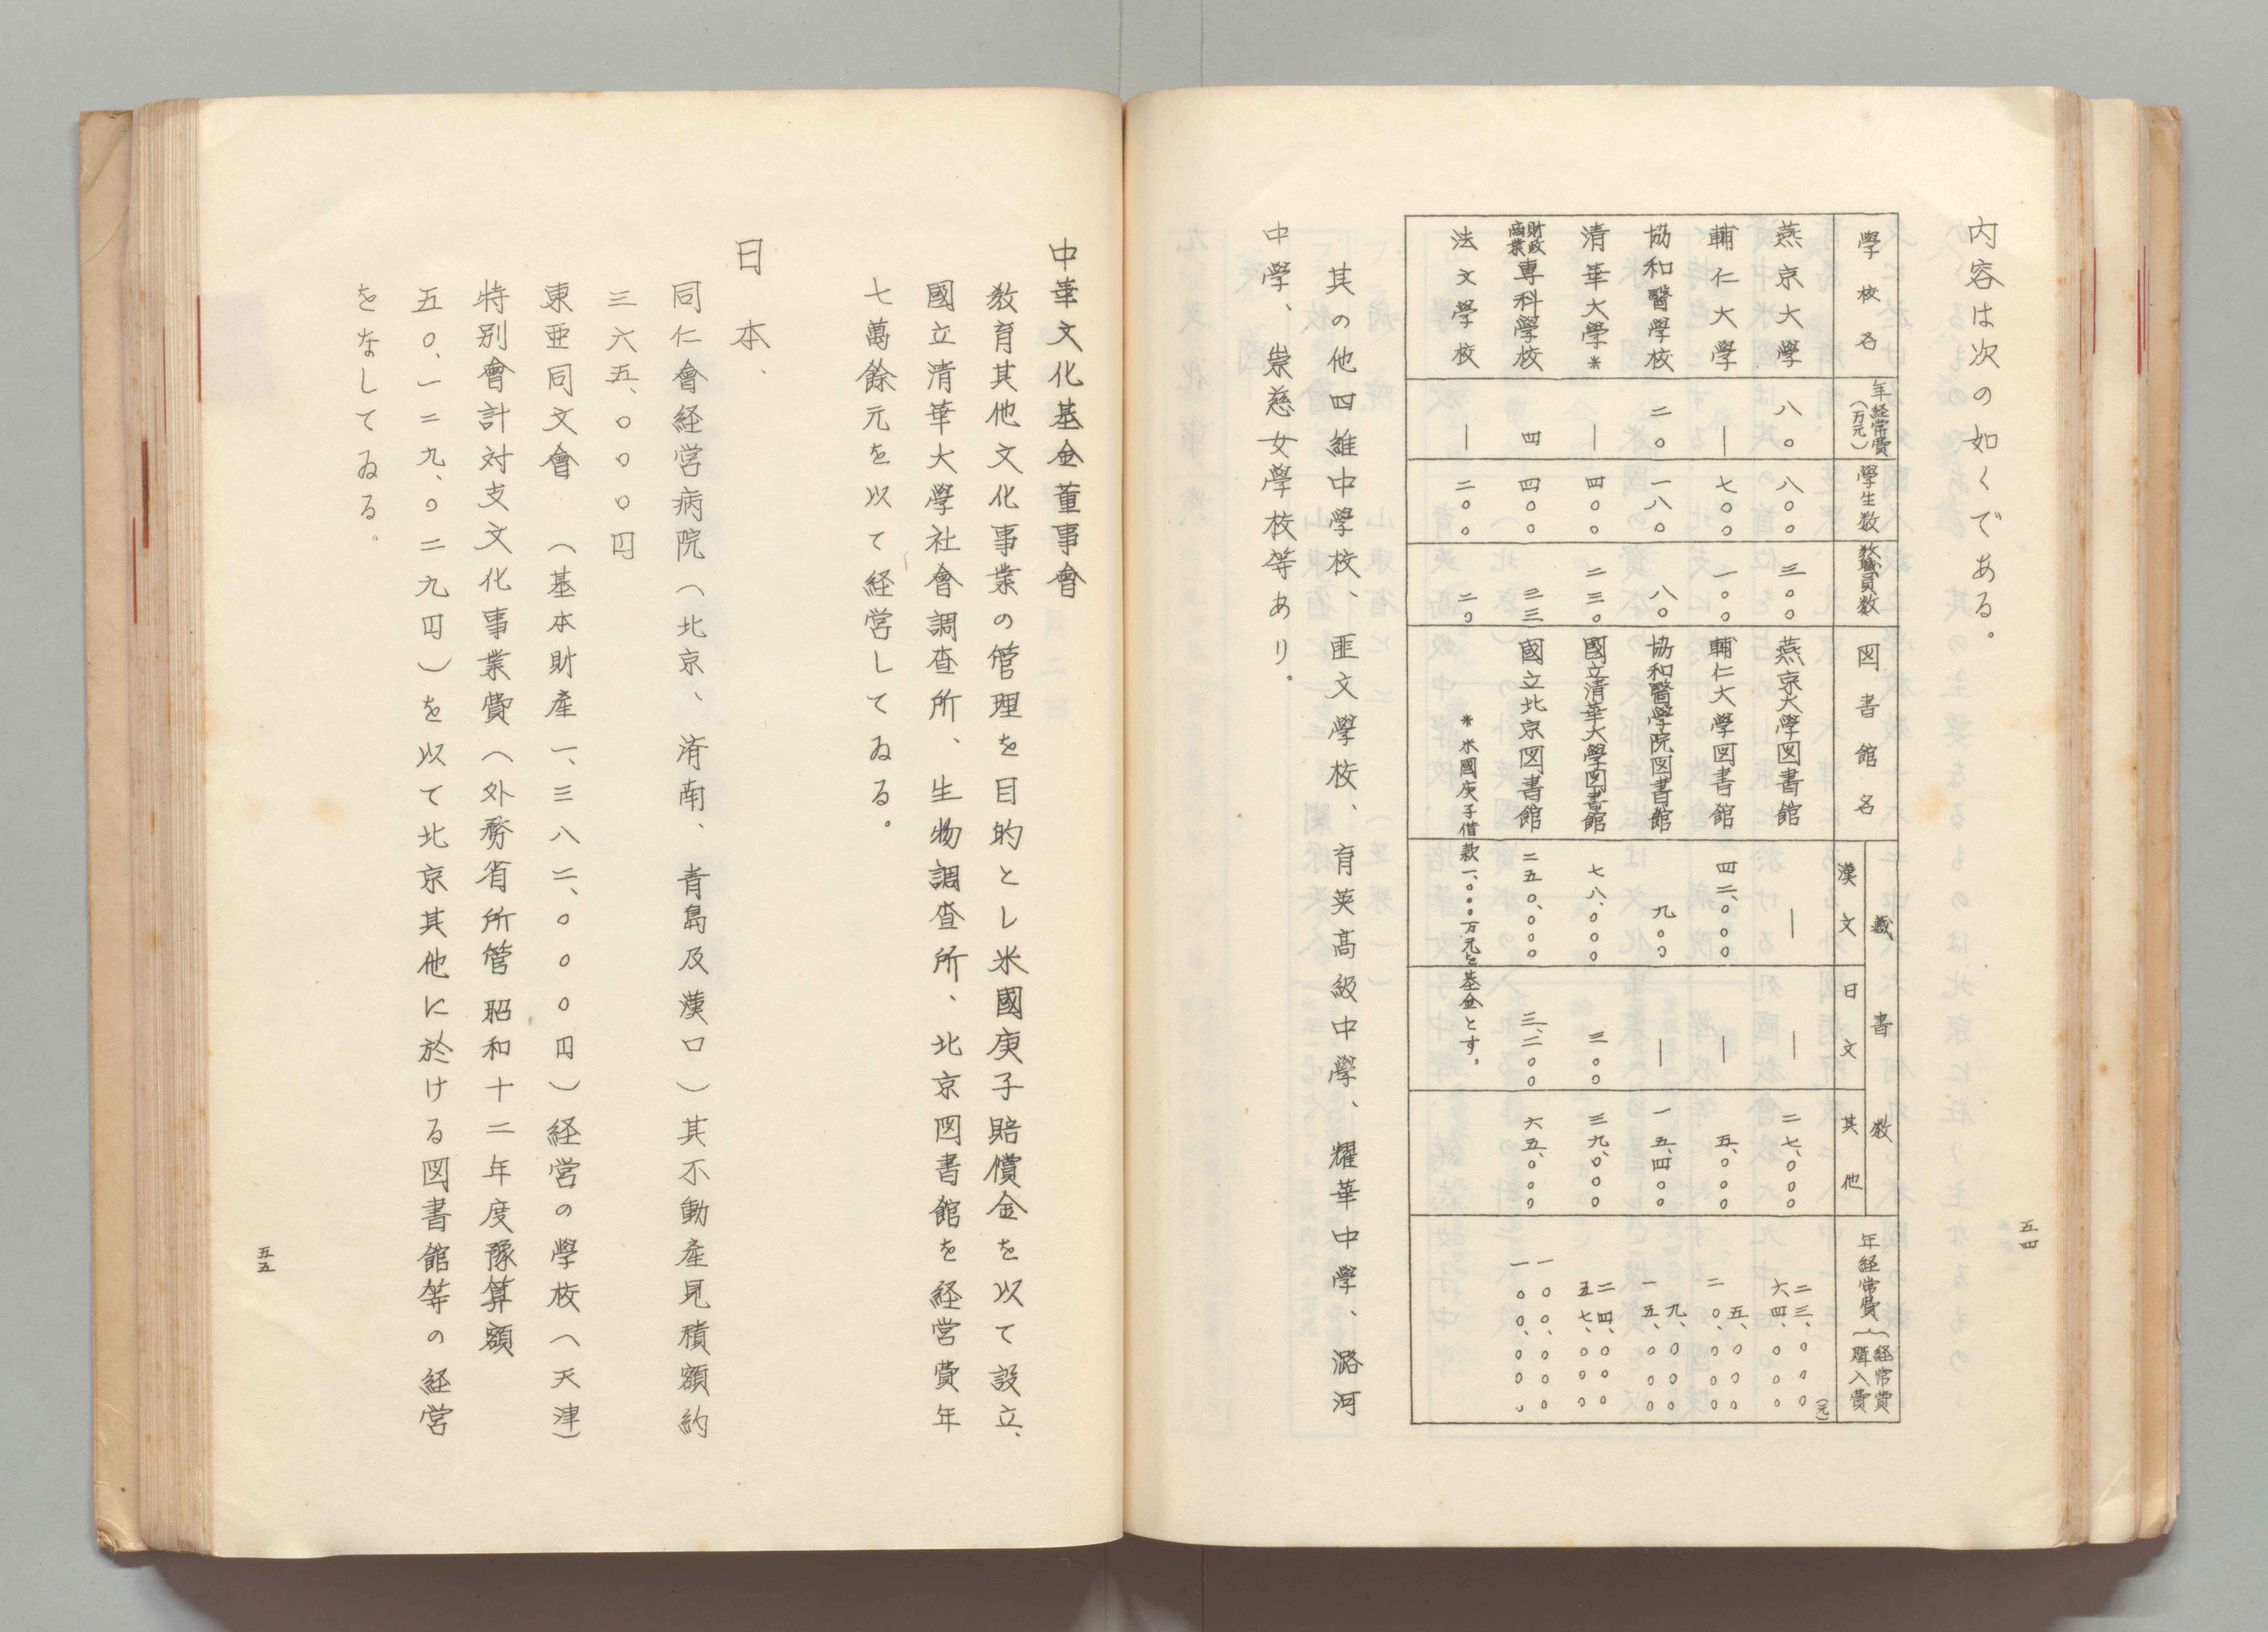 内容は次の如くである。
學校名
年経常費(万元)
學生数
教職員数
図書館名
蔵書数
漢文
日文
其他
年経常費{経常費 購入費
(元)
燕京大學 八〇 八〇〇 三〇〇 燕京大學図書館 ― ― 二七、〇〇〇 二三、〇〇〇 六四、〇〇〇
輔仁大學 ― 七〇〇 一〇〇 輔仁大學図書館 四二、〇〇〇 ― 五、〇〇〇 五、〇〇〇 二〇、〇〇〇
協和醫學校 二〇 一八〇 八〇 協和醫學院図書館 九〇〇 ― 一五、四〇〇 九、〇〇〇 一五、〇〇〇
清華大學* ― 四〇〇 二三〇 國立清華大學図書館 七八、〇〇〇 三〇〇 三九、〇〇〇 二四、〇〇〇 五七、〇〇〇
財政商業専科學校 四 四〇〇 三三 國立北京図書館 二五〇、〇〇〇 三、二〇〇 六五、〇〇〇 一〇〇、〇〇〇 一〇〇、〇〇〇
法文學校 ― 二〇〇 二〇
*米國庚子借款一、〇〇〇万元を基金とす。
其の他四維中學校、匪文學校、育英高級中學、耀華中學、潞河
中學、崇慈女學校等あり。
五四
中華文化基金董事會
教育其他文化事業の管理を目的とし米國庚子賠償金を以て設立、
國立清華大學社會調査所、生物調査所、北京図書館を経営費年
七萬餘元を以て経営してゐる。
日本、
同仁會経営病院(北京、済南、青島及漢口)其不動産見積額約
三六五、〇〇〇円
東亜同文會(基本財産一、三八二、〇〇〇円)経営の學校(天津)
特別會計対支文化事業費(外務省所管昭和十二年度豫算額
五〇、一二九、〇二九円)を以て北京其他に於ける図書館等の経営
をなしてゐる。
五五